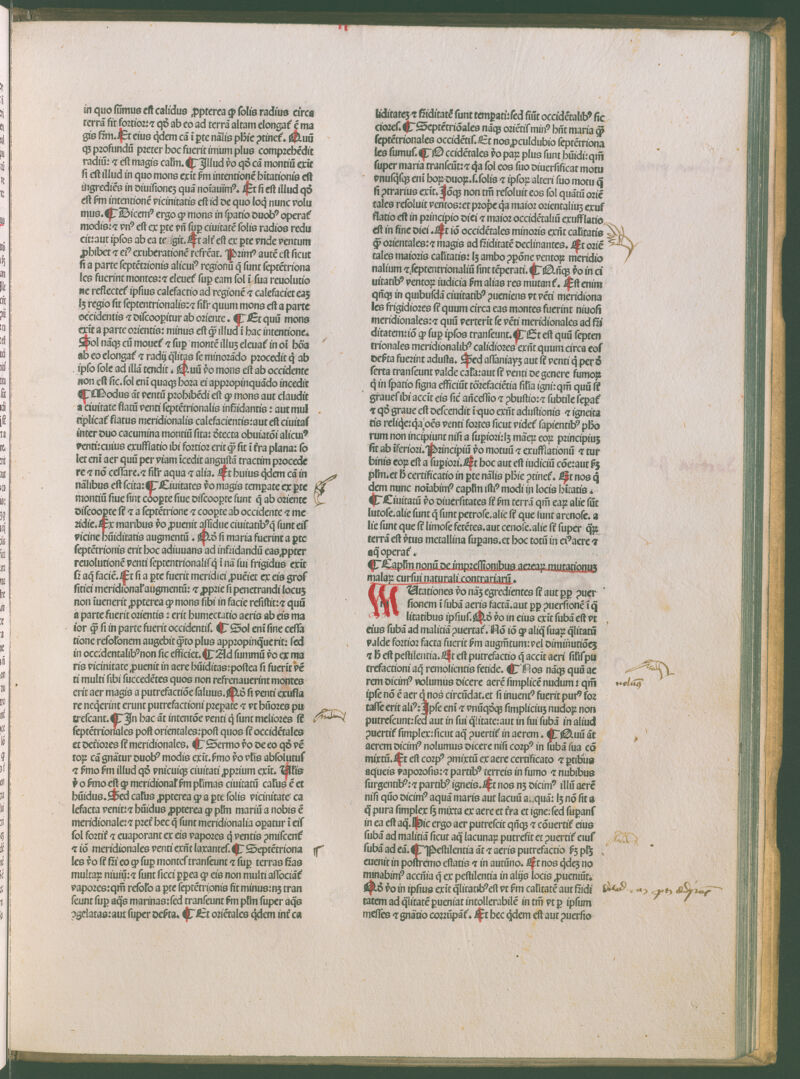 in quo sũmus est calidus ꝓpterea ꝙ solis radius circa
terrã fit fortior: ⁊ qđ ab eo ad terrã altam elongat̃ ẽ ma
gis frm̃. Et eius qđem cã ĩ ꝑte nãlis phĩe ꝯtinet̃. Quũ
qs profundũ preter hoc fuerit imum plus comprehẽdit
radiũ: ⁊ est magis calm̃. ¶ Illud ṽo qđ cã montiũ exit
si est illud in quo mons exit ẜm intentionẽ hĩtationis est
ingrediẽs in diuisionẽ quã noĩauimꝰ. Et si est illud qđ
est ẜm intentionẽ vicinitatis est id de quo loq̃ nunc volu
mus. ¶ Dicemꝰ ergo ꝙ mons in spatio duobꝰ operat̃
modis: ⁊ vnꝰ est ex ꝑte vñ suꝑ ciuitatẽ solis radios redu
cit: aut ipsos ab ea tegit. Et alſ est ex ꝑte vnde ventum
ꝓhibet ⁊ eiꝰ exuberationẽ refreat. Primꝰ autẽ est sicut
si a parte septẽtrionis alicuiꝰ regionũ q̃ sunt septẽtriona
les fuerint montes: ⁊ eleuet̃ suꝑ eam sol ĩ sua reuolutio
ne reflectet̃ ipsius calefactio ad regionẽ ⁊ calefaciet eaꝫ
lꝫ regio sit septentrionalis: ⁊ silr̃ quum mons est a parte
occidentis ⁊ discoopitur ab oriente. ¶ Et quũ mons
exit a parte orientis: minus est ꝙ̃ illud ĩ hac intentione.
Sol nãqs cũ mouet̃ ⁊ suꝑ montẽ illuꝫ eleuat̃ in oĩ hõa
ab eo elongat̃ ⁊ radij q̃litas se minorãdo procedit q̃ ab
ipso sole ad illã tendit. Quũ ṽo mons est ab occidente
non est sic. sol enĩ quaqꝫ hora ei appropinquãdo incedit
¶ Modus ãt ventũ prohibẽdi est ꝙ mons aut claudit
a ciuitate flatũ venti septẽtrionalis infridantis: aut mul
tiplicat̃ flatus meridionalis calefacientis: aut est ciuitas
inter duo cacumina montiũ sita: directa obuiatõi alicuꝰ
venti: cuius exufflatio ibi fortior erit ꝙ̃ sit ĩ tr̃a plana: so
let enĩ aer quũ per viam ĩcedit angustã tractim procede
re ⁊ nõ cessare. ⁊ silr̃ aqua ⁊ alia. Et huius qđem cã in
nãlibus est scita: ¶ Ciuitates ṽo magis tempate ex ꝑte
montiũ siue sint coopte siue discoopte sunt q̃ ab oriente
discoopte sũt ⁊ a septẽtrione ⁊ coopte ab occidente ⁊ me
ridie. Ex maribus ṽo ꝓuenit assidue ciuitatibꝰ q̃ sunt eis
vicine hũiditatis augmentũ. Qđ si maria fuerint a ꝑte
septẽtrionis erit hoc adiuuans ad infridandũ eas ꝓpter
reuolutionẽ venti septentrionalis q̃ ĩ nã sui frigidus exit
sĩ aq̃ faciẽ. Et si a ꝑte fuerit meridiei ꝓueiet ex eis gros
sitiei meridional̃ augmentũ: ⁊ ꝓprie si penetrandi locuꝫ
non ĩuenerit ꝓpterea ꝙ mons sibi in facie resistit: ⁊ quũ
a parte fuerit orientis: erit humectatio aeris ab eis ma
ior ꝙ̃ si in parte fuerit occidentis. ¶ Sol enĩ sine cessa
tione resolõnem augebit q̃to plus appropinqueerit: sed
in occidentalibꝰ non sic efficiet. ¶ Ad summũ ṽo ex ma
ris vicinitate ꝓuenit in aere hũiditas: postea si fuerĩt vẽ
ti multi sibi succedẽtes quos non refrenauerint montes
erit aer magis a putrefactiõe saluus. Qđ si venti exuffla
re neq̃rint erunt putrefactioni preparate ⁊ vt hũores pu
trescant. ¶ In hac ãt intentõe venti q̃ sunt meliores sũt
septẽtrionales post orientales: post quos sũt occidẽtales
et deriores sũt meridionales. ¶ Sermo ṽo de eo qđ vẽ
toꝝ cã gnãtur duobꝰ modis exit. ẜmo ṽo vlis absolutus
⁊ ẜmo ẜm illud qđ vnicuiqꝫ ciuitati ꝓprium exit. Vlis
ṽo ẜmo est ꝙ meridional̃ ẜm plimas ciuitatũ calus ẽ et
hũidus. Sed calus ꝓpterea ꝙ a ꝑte solis vicinitate ca
lefacta venit: ⁊ hũidus ꝓpterea ꝙ plm̃ mariũ a nobis ẽ
meridionale: ⁊ pret̃ hec q̃ sunt meridionalia opatur ĩ eis
sol fortit̃ ⁊ euaporant ex eis vapores q̃ ventis ꝯmiscent̃
⁊ iõ meridionales venti exñt laxantes. ¶ Septẽtriona
les ṽo sũt fri eo ꝙ suꝑ montes transeunt ⁊ suꝑ terras frias
multaꝝ niuiũ: ⁊ sunt sicci ꝓpea ꝙ eis non multi associãt̃
vapores: qm̃ resolõ a ꝑte septẽtrionis fit minus: nꝫ tran
seunt suꝑ aq̃s marinas: sed transeunt ẜm plm̃ super aq̃s
ꝯgelatas: aut super ðserta. ¶ Et oriẽtales qđem int̃ ca
liditateꝫ ⁊ friditatẽ sunt tempati: sed siũt occidẽtalibꝰ sic
ciores. ¶ Septẽtriõales nãqꝫ oriẽtis minꝰ hñt maria ꝙ̃
septẽtrionales occidẽtis. Et nos proculdubio septẽtriona
les sumus. ¶ Occidẽtales ṽo paꝝ plus sunt hũidi: qm̃
super maria transeũt: ⁊ q̃a sol eos suo diuersificat motu
vnusqꝫqꝫ enĩ hoꝝ duoꝝ. s. solis ⁊ ipsoꝝ alteri suo motu q̃
si ꝯtrarius exit. Iõqꝫ non tm̃ resoluit eos sol quãtũ oriẽ
tales resoluit ventos: et prope q̃a maior orientaliuꝫ exuf
flatio est in principio diei ⁊ maior occidẽtaliũ exufflatio
est in fine diei. Et iõ occidẽtales minoris exñt caliditatis
ꝙ̃ orientales: ⁊ magis ad friditatẽ declinantes. Et oriẽ
tales maioris caliditatis: lꝫ ambo ꝯpõne ventoꝝ meridio
nalium ⁊ septentrionaliũ sint tẽperati. ¶ Qñqꝫ ṽo in ci
uitatibꝰ ventoꝝ iudicia ẜm alias res mutant̃. Est enim
qñqꝫ in quibusdã ciuitatibꝰ ꝓueniens vt vẽti meridiona
les frigidiores sĩt quum circa eas montes fuerint niuosi
meridionales: ⁊ quũ vertetur se vẽti meridionales ad fri
ditatem: iõ ꝙ suꝑ ipsos transeunt. ¶ Et est quũ septen
trionales meridionalibꝰ calidiores exñt quum circa eos
ðserta fuerint adusta. Sed assaniayꝫ aut sũt venti q̃ per ð
serta transeunt valde calia: aut sũt venti de genere fumoꝝ
q̃ in spatio signa efficiũt tõrefaciẽtia silia igni: qm̃ quũ sũt
graues sibi accit eis sic añcessio ⁊ ꝯbustio: ⁊ subtile sepat̃
⁊ qđ graue est descendit ĩ quo exñt adustionis ⁊ igneita
tis reliqe: q̃a oẽs venti fortes sicut videt̃ sapientibꝰ phõ
rum non incipiunt nisi a supiori: lꝫ mãeeꝝ eoꝝ principiuꝫ
sit ab iferiori. Principiũ ṽo motuũ ⁊ exufflationũ ⁊ tur
binis eoꝝ est a supiori. Et hoc aut est iudiciũ cõe: aut ẜm
plm̃. et ħ certificatio in ꝑte nãlis phĩe ꝯtinet̃. Et nos q̃
dem nunc noĩabimꝰ caplm̃ istiꝰ modi in locis hĩtatis.
¶ Ciuitatũ ṽo diuersitates sũt ẜm terrã qm̃ eaꝝ alie sũt
lutose. alie sunt q̃ sunt petrose. alie sũt que sunt arenose. a
lie sunt que sũt limose fetẽtes. aut cenose. alie sũt super q̃ꝝ
terrã est ṽtus metallina supans. et hoc totũ in eiꝰ aere ⁊
aq̃ operat̃.
¶ Caplm̃ nonũ de impressionibus aereaꝝ mutationuꝫ
malaꝝ cursui naturali contrariarũ.
Mutationes ṽo naꝫ egredientes sũt aut ꝑꝑ ꝯuer
sionem ĩ subã aeris factã. aut ꝑꝑ ꝯuersionẽ ĩ q̃
litatibus ipsius. Qđ ṽo in eius exit subã est vt
eius subã ad malitiã ꝯuertat̃. Nõ iõ ꝙ aliq̃ suaꝝ q̃litatũ
valde fortior facta fuerit ẜm augm̃tum: vel diminutiõeꝫ
⁊ ħ est pestilentia. Et est putrefactio q̃ accit aeri silis pu
trefactioni aq̃ remolientis fetide. ¶ Nos nãqꝫ quũ ae
rem dicimꝰ volumus dicere aerẽ simplicẽ nudum: qm̃
ipse nõ ẽ aer q̃ nos circũdat. et si inuent̃ fuerit putꝰ for
tasse erit aliꝰ: Ipse enĩ ⁊ vnũqđqꝫ simpliciuꝫ nudoꝝ non
putrescunt: sed aut in sui q̃litate: aut in sui subã in aliud
ꝯuertit̃ simplex: sicut aq̃ ꝯuertit̃ in aerem. ¶ Quũ ãt
aerem dicimꝰ nolumus dicere nisi corpꝰ in subã sua cõ
mixtũ. Et est corpꝰ ꝯmixtũ ex aere certificato ⁊ ꝑtibus
aqueis vaporosis: ⁊ partibꝰ terreis in fumo ⁊ nubibus
surgentibꝰ: ⁊ partibꝰ igneis. Et nos nꝫ dicimꝰ illũ aerẽ
nisi quo dicimꝰ aquã maris aut lacuũ aquã: lꝫ nõ sit a
q̃ pura simplex lꝫ mixta ex aere et tr̃a et igne: sed supans
in ea est aq̃. Hic ergo aer putrescit qñqꝫ ⁊ cõuertit̃ eius
subã ad malitiã sicut aq̃ lacunaꝝ putrescit et ꝯuertit̃ eius
subã ad eã. ¶ Pestilentia ãt ⁊ aeris putrefactio ẜm plꝫ
euenit in postremo estatis ⁊ in autũno. Et nos qđeꝫ no
minabimꝰ accñtia q̃ ex pestilentia in alijs locis ꝓueniũt.
Qđ ṽo in ipsius exit q̃litatibꝰ est vt ẜm caliditatẽ aut fridi
tatem ad q̃litatẽ ꝓueniat intollerabilẽ in tm̃ vt ꝑ ipsum
messes ⁊ gnãtio corrũpãt̃. Et hec qđem est aut ꝯuersio